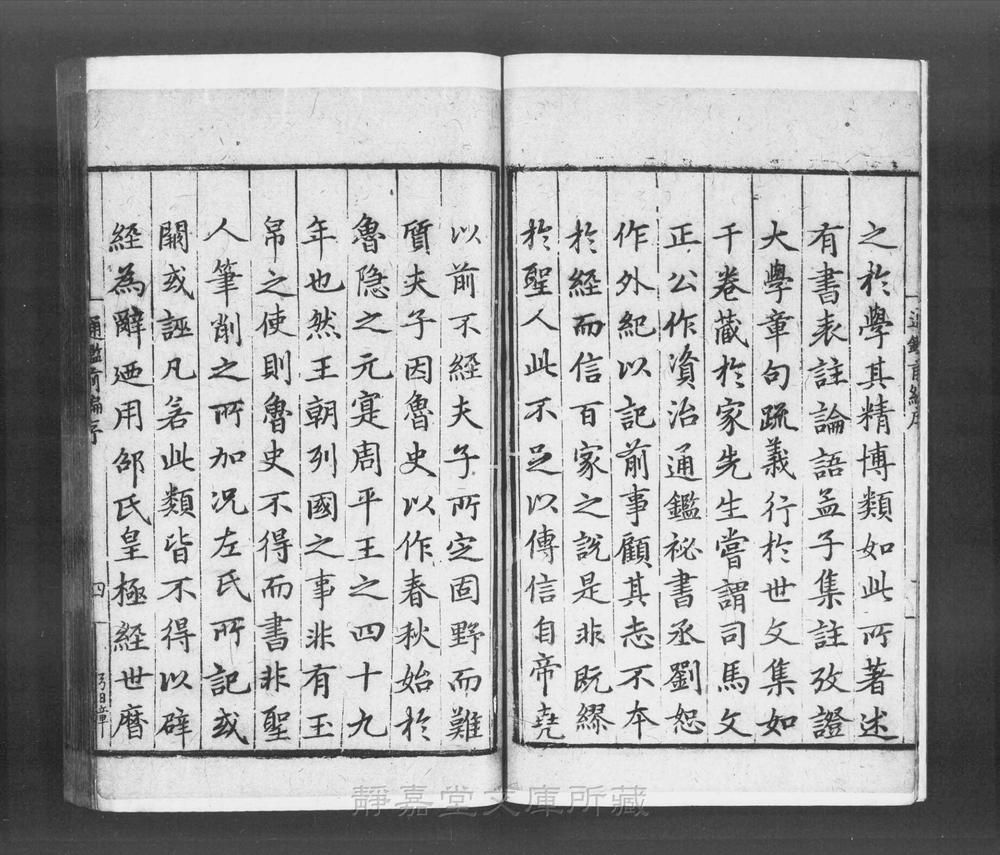 之於學其精博類如此所著述
有書表註論語孟子集註攷證
大學章句疏義行於世文集如
干卷藏於家先生嘗謂司馬文
正公作資治通鑑祕書丞劉恕
作外紀以記前事顧其志不本
於經而信百家之說是非既繆
於聖人此不足以傳信自帝堯
以前不經夫子所定固野而難
質夫子因魯史以作春秋始於
魯隱之元寔周平王之四十九
年也然王朝列國之事非有玉
帛之使則魯史不得而書非聖
人筆削之所加况左氏所記或
闕或誣凡若此類皆不得以辟
經為辭迺用邵氏皇極經世曆
通鑑前編序
四
通鑑前編序
靜嘉堂文庫所藏